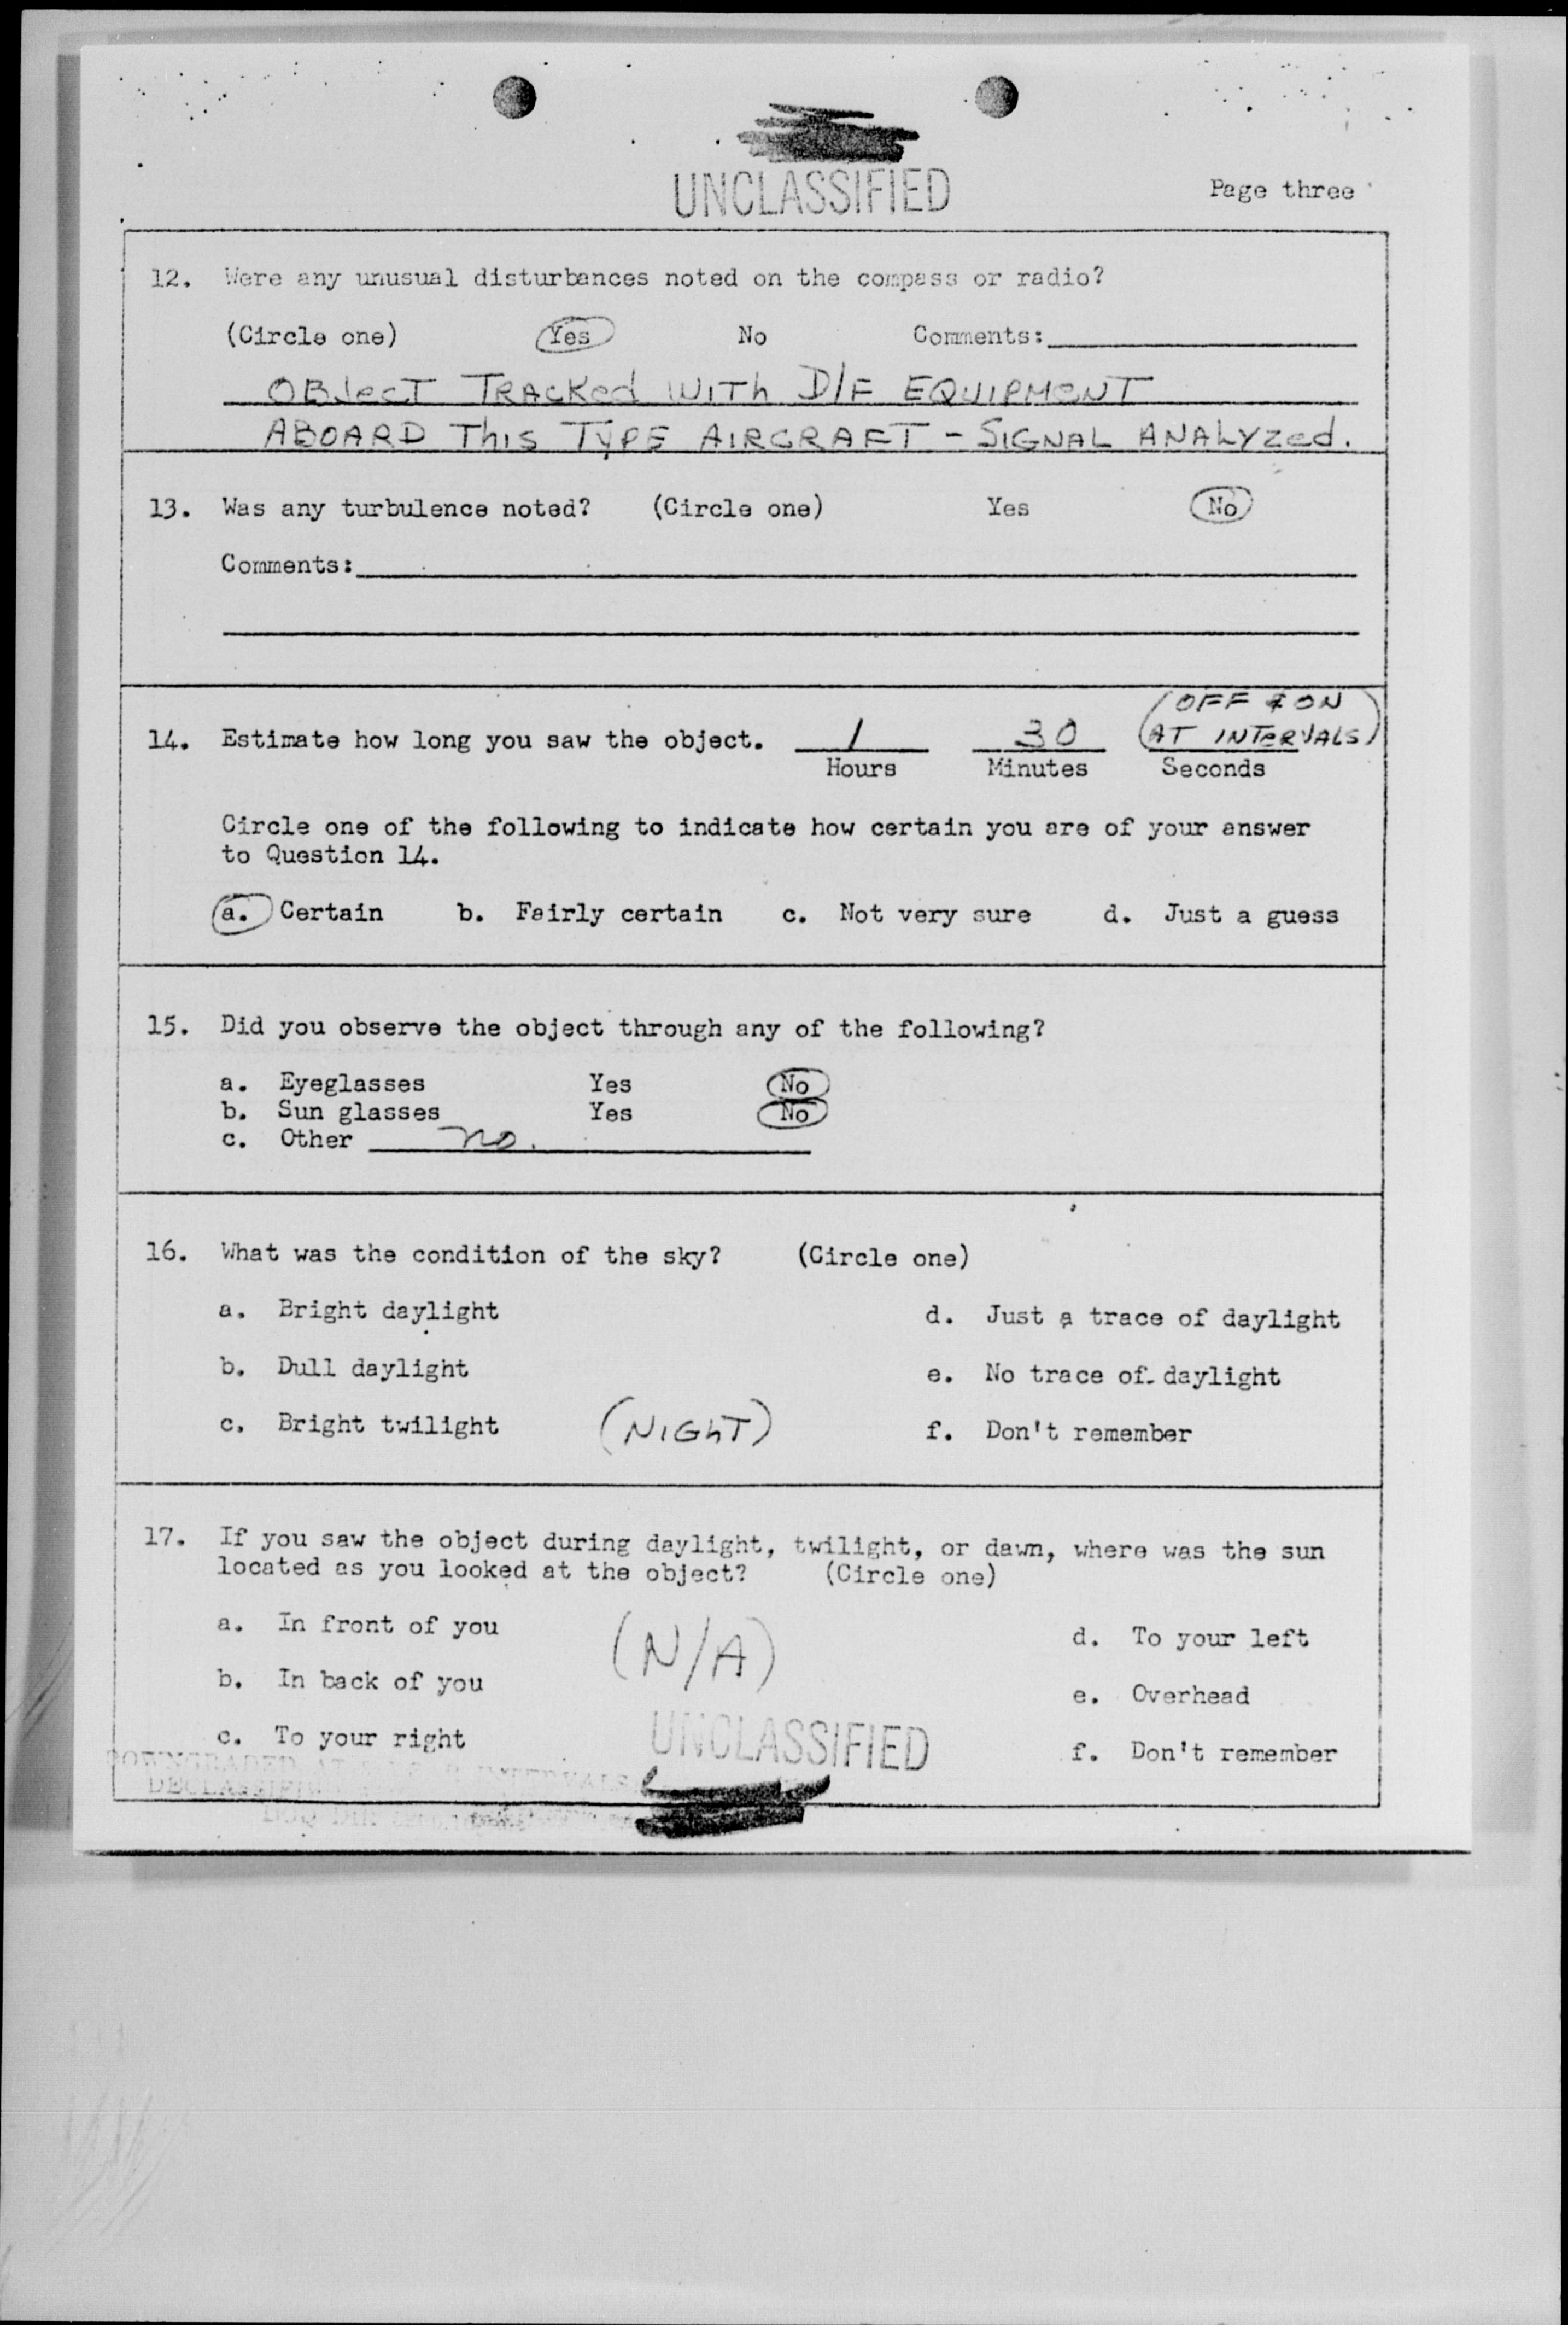 UNCLASSIFIED
Page three
12. Were any unusual disturbances noted on the compass or radio?
(Circle one) Yes No Comments:
OBJecT TRACKed WITh D/F EQUIPMeNT
ABOARD ThIS TyPE AIRCRAFT - SIGNAL ANALyzed.
13. Was any turbulence noted? (Circle one) Yes No
Comments:
(OFF & ON
14. Estimate how long you saw the object. 1 30 AT INTeRVALS)
Hours Minutes Seconds
Circle one of the following to indicate how certain you are of your answer
to Question 14.
a. Certain b. Fairly certain c. Not very sure d. Just a guess
15. Did you observe the object through any of the following?
a. Eyeglasses Yes No
b. Sun glasses Yes No
c. Other no.
16. What was the condition of the sky? (Circle one)
a. Bright daylight d. Just a trace of daylight
b. Dull daylight e. No trace of daylight
c. Bright twilight (NIGhT) f. Don't remember
17. If you saw the object during daylight, twilight, or dawn, where was the sun
located as you looked at the object? (Circle one)
a. In front of you (N/A) d. To your left
b. In back of you e. Overhead
c. To your right f. Don't remember
UNCLASSIFIED
DOWNGRADED AT INTERVALS